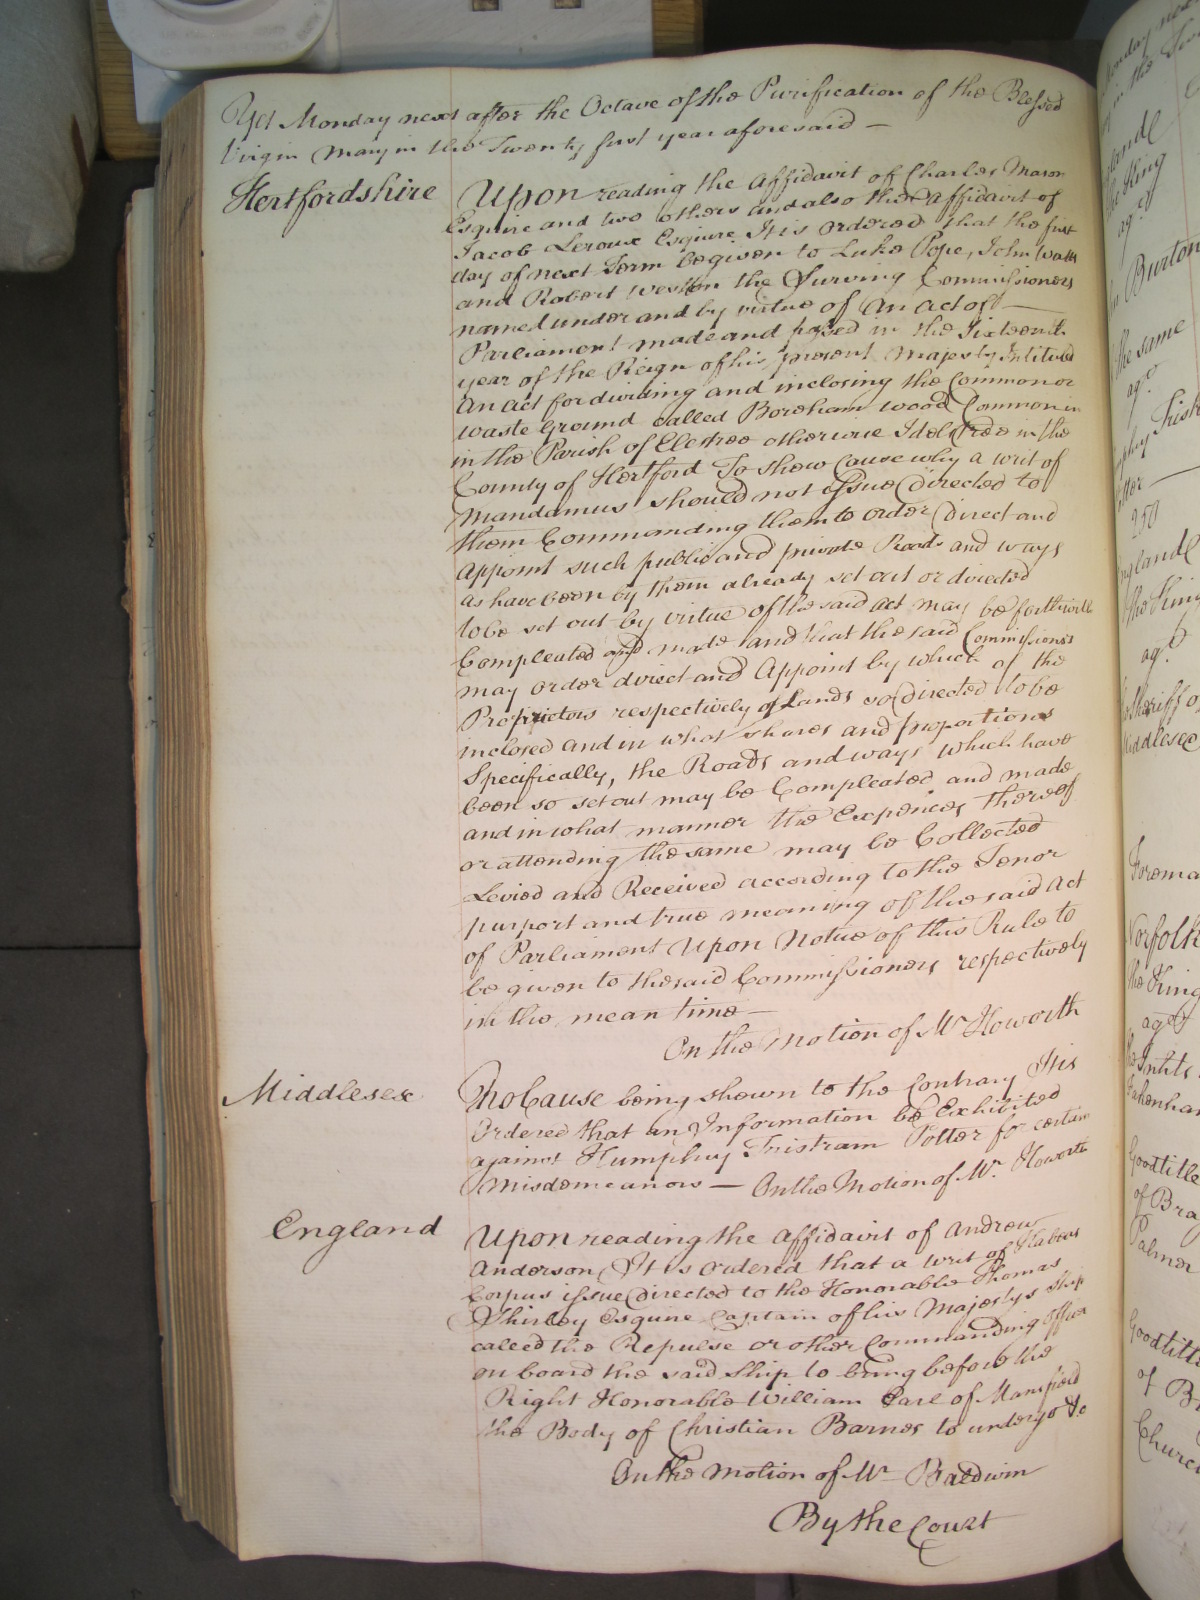 Yet Monday next after the Octave of the Purification of the Blessed
Virgin Mary in the Twenty first year aforesaid —
Hertfordshire
Upon reading the Affidavit of Charles Mason
Esquire and two others and also the Affidavit of
Jacob Leroux Esquire It is ordered that the first
day of next Term be given to Luke Pope, John Watts
and Robert Weston the Surving Commissioners
named under and by virtue of an Act of —
Parliament made and passed in the Sixteenth
year of the Reign of his present Majesty Intituled
An Act for dividing and inclosing the Common or
Waste Ground called Boreham Wood Common in
in the Parish of Elestree otherwise Idelstree in the
County of Hertford To show Cause why a writ of
Mandamus should not issue Directed to
them Commanding them to order Direct and
Appoint such public and private Roads and ways
as have been by them already set out or directed
to be set out by virtue of the said Act may be forthwith
Compleated and made and that the said Commissioners
may order direct and Appoint by which of the
Proprietors respectively of Lands so Directed to be
inclosed and in what shares and proportions
Specifically, the Roads and ways which have
been so set out may be Compleated and made
and in what manner the Expences thereof
or attending the same may be Collected
Levied and Received according to the Tenor
purport and true meaning of the said Act
of Parliament Upon Notice of this Rule to
be given to the said Commissioners respectively
in the mean time —
On the Motion of Mr Howorth
Middlesex
No Cause being shown to the Contrary It is
Ordered that an Information be Exhibited
against Humphry Tristram Potter for certain
Misdemeanors — On the Motion of Mr. Howorth
England
Upon reading the Affidavit of Andrew
Anderson It is ordered that a writ of Habeas
Corpus issue Directed to the Honorable Thomas
Shirley Esquire Captain of his Majestys Ship
called the Repulse or other Commanding officer
on board the said Ship to bring before the
Right Honorable William Earl of Mansfield
the Body of Christian Barnes to undergo &c
On the Motion of Mr Baldwin
By the Court
Burton
the same
agt
250
England
the King
agt
Sheriff of
Middlesex
Norfolk
the King
agt
Goodtitle
of Bra
Palmer
Goodtitle
of B
Church